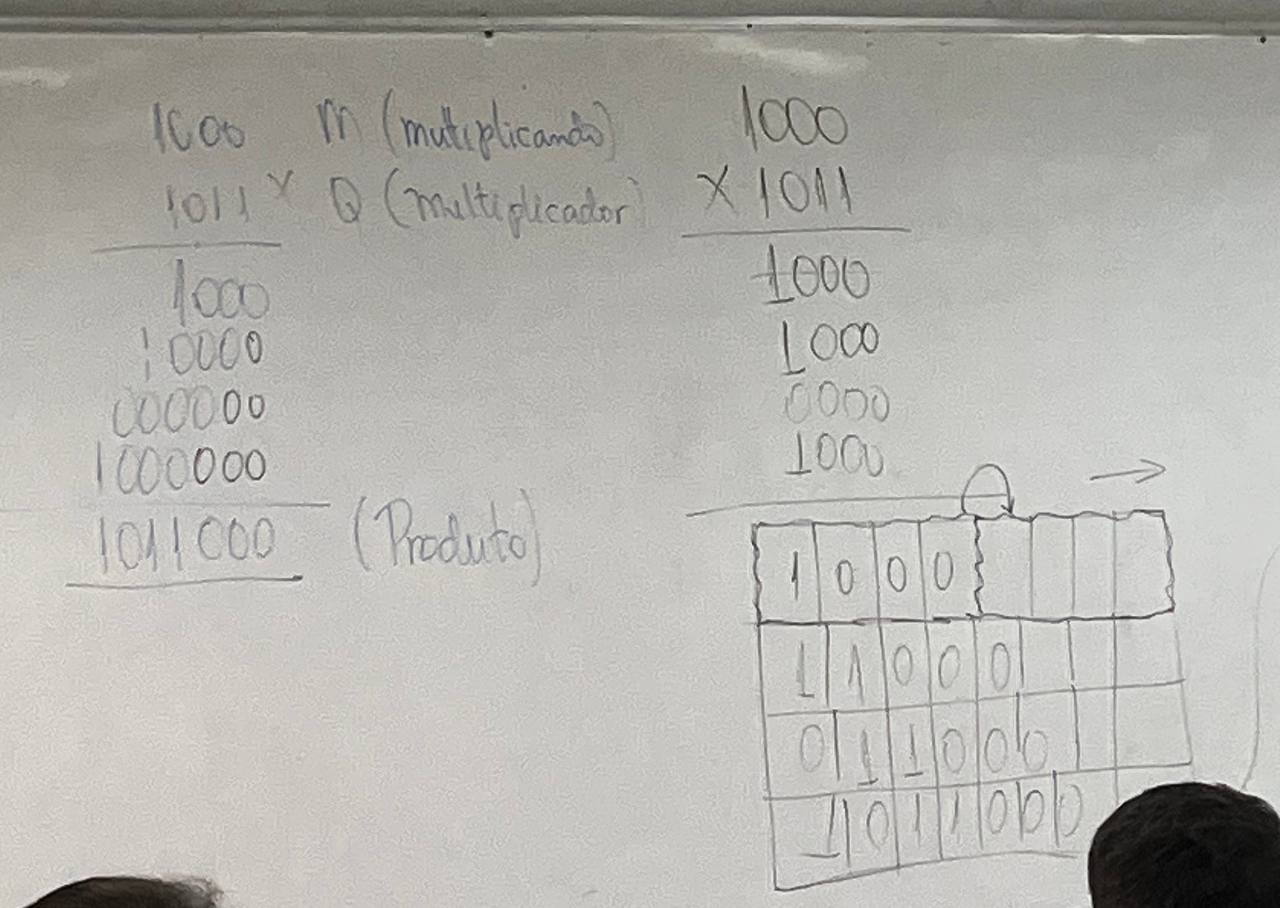 1000 M (mutiplicando)
1011 x Q (multiplicador)
1000
10000
000000
1000000
1011000 (Produto)
1000
X 1011
1000
1000
0000
1000
1 0 0 0
1 1 0 0 0
0 1 1 0 0 0
1 0 1 1 0 0 0